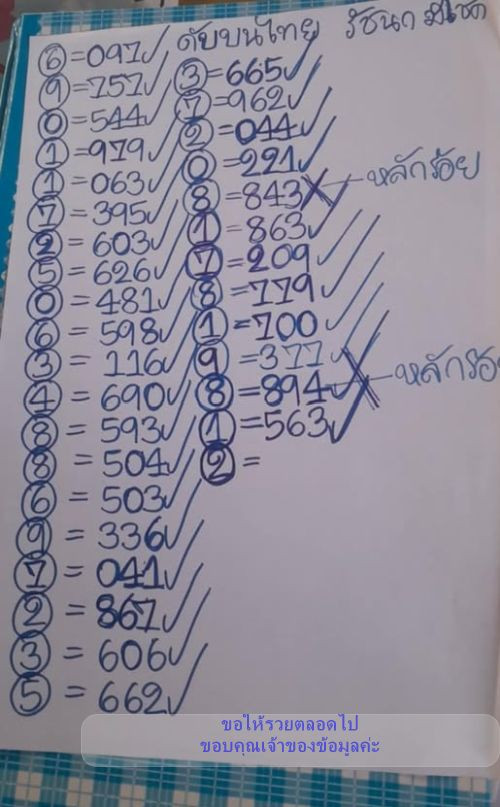 ดับบนไทย รัชนก มีโชค
6 =097✓
9 =757✓
0 =544✓
1 =979✓
1 =063✓
7 =395✓
2 =603✓
5 =626✓
0 =481✓
6 =598✓
3 =116✓
4 =690✓
8 =593✓
8 =504✓
6 =503✓
9 =336✓
7 =041✓
2 =867✓
3 =606✓
5 =662✓
3 =665✓
7 =962✓
2 =044✓
0 =221✓
8 =843✗ หลักร้อย
1 =863✓
7 =209✓
8 =779✓
1 =700✓
9 =377✓
8 =894✗ หลักร้อ
1 =563✓
2 =
ขอให้รวยตลอดไป
ขอบคุณเจ้าของข้อมูลค่ะ